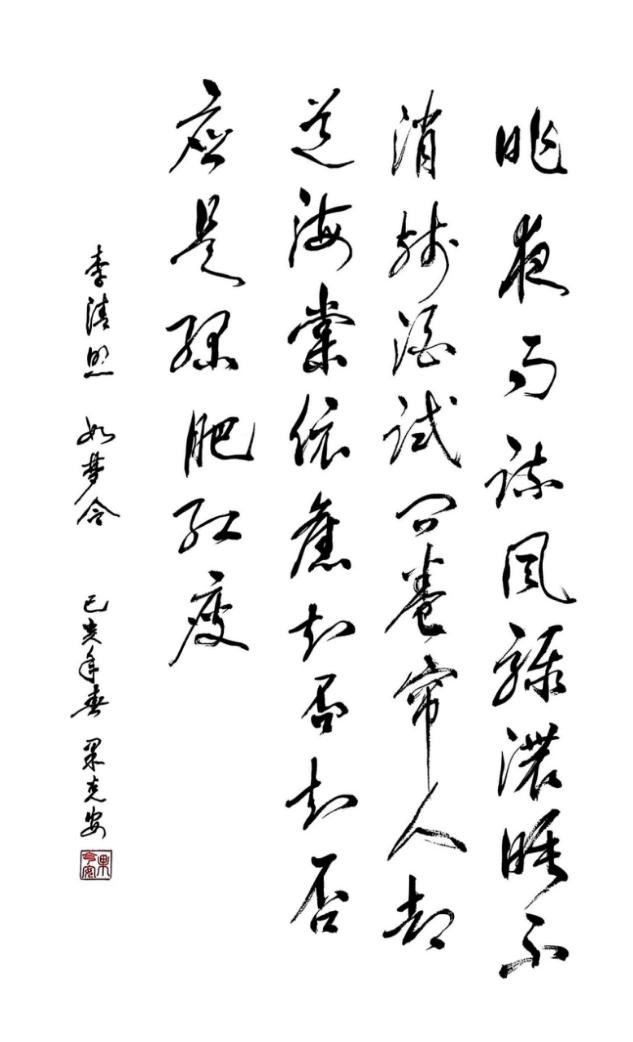 昨夜雨疏風驟濃睡不
消殘酒試問卷帘人却
道海棠依舊知否知否
應是綠肥紅瘦
李清照 如夢令 己亥年春 克安